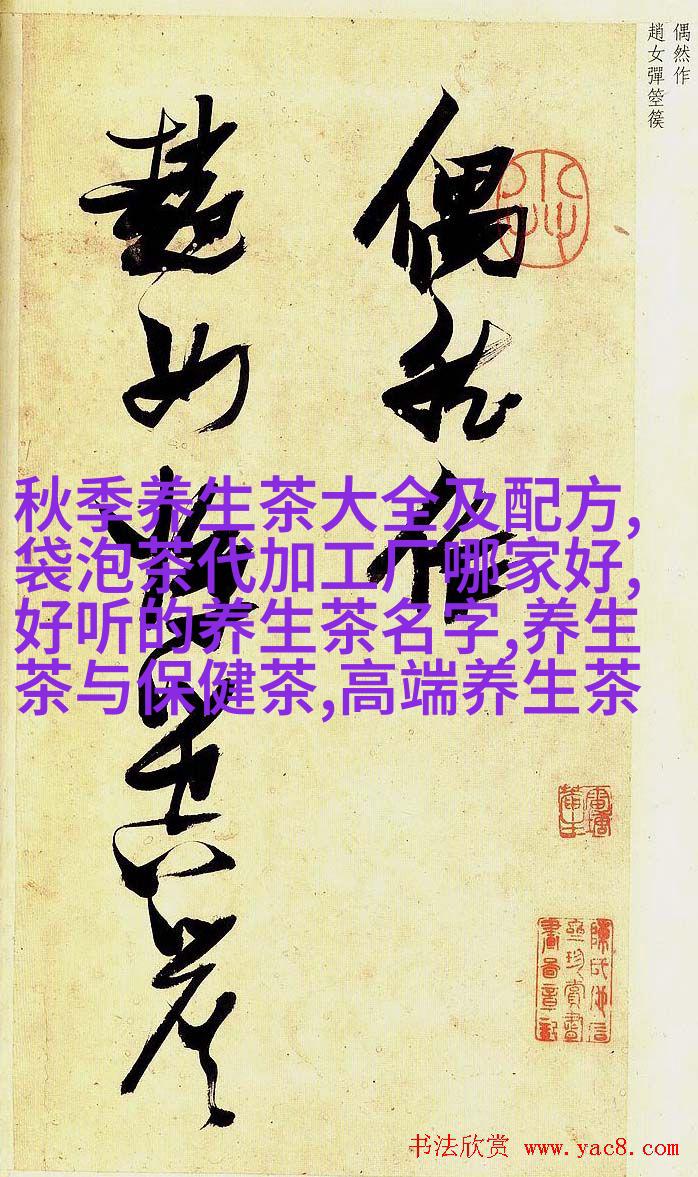 偶然作
趙女彈箜篌
偶然作
趙女彈箜篌
秋季养生茶大全及配方,
袋泡茶代加工厂哪家好,
好听的养生茶名字,养生
茶与保健茶,高端养生茶
书法欣赏 www.yac8.com